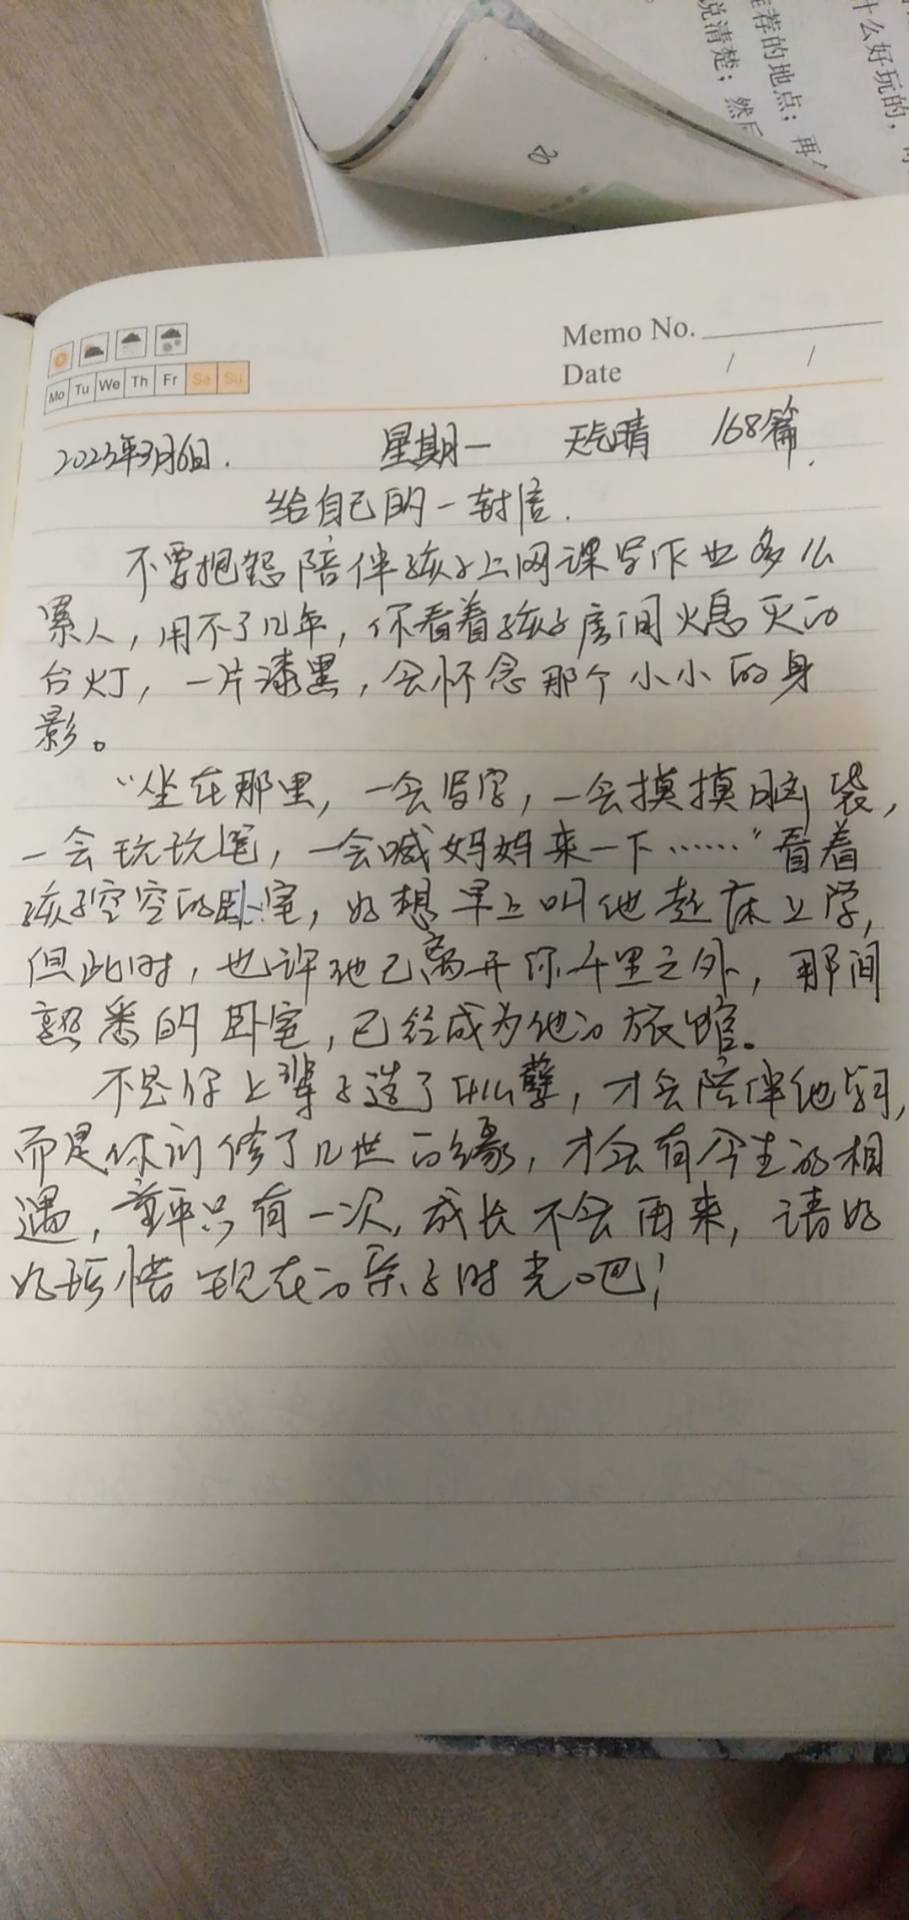 说清楚；然后
推荐的地点；再
什么好玩的，
20
Memo No.
Mo Tu We Th Fr Sa Su
Date / /
2023年3月6日. 星期一 天气晴 168篇.
给自己的一封信.
不要抱怨陪伴孩子上网课写作业多么
累人，用不了几年，你看着孩子房间熄灭的
台灯，一片漆黑，会怀念那个小小的身
影。
“坐在那里，一会写字，一会摸摸脑袋，
一会玩玩笔，一会喊妈妈来一下……”看着
孩子空空的卧室，好想早上叫他起床上学，
但此时，也许他已离开你千里之外，那间
熟悉的卧室，已经成为他的旅馆。
不是你上辈子造了什么孽，才会陪伴他学习，
而是你们修了几世的缘，才会有今生的相
遇，童年只有一次，成长不会再来，请好
好珍惜现在的亲子时光吧！